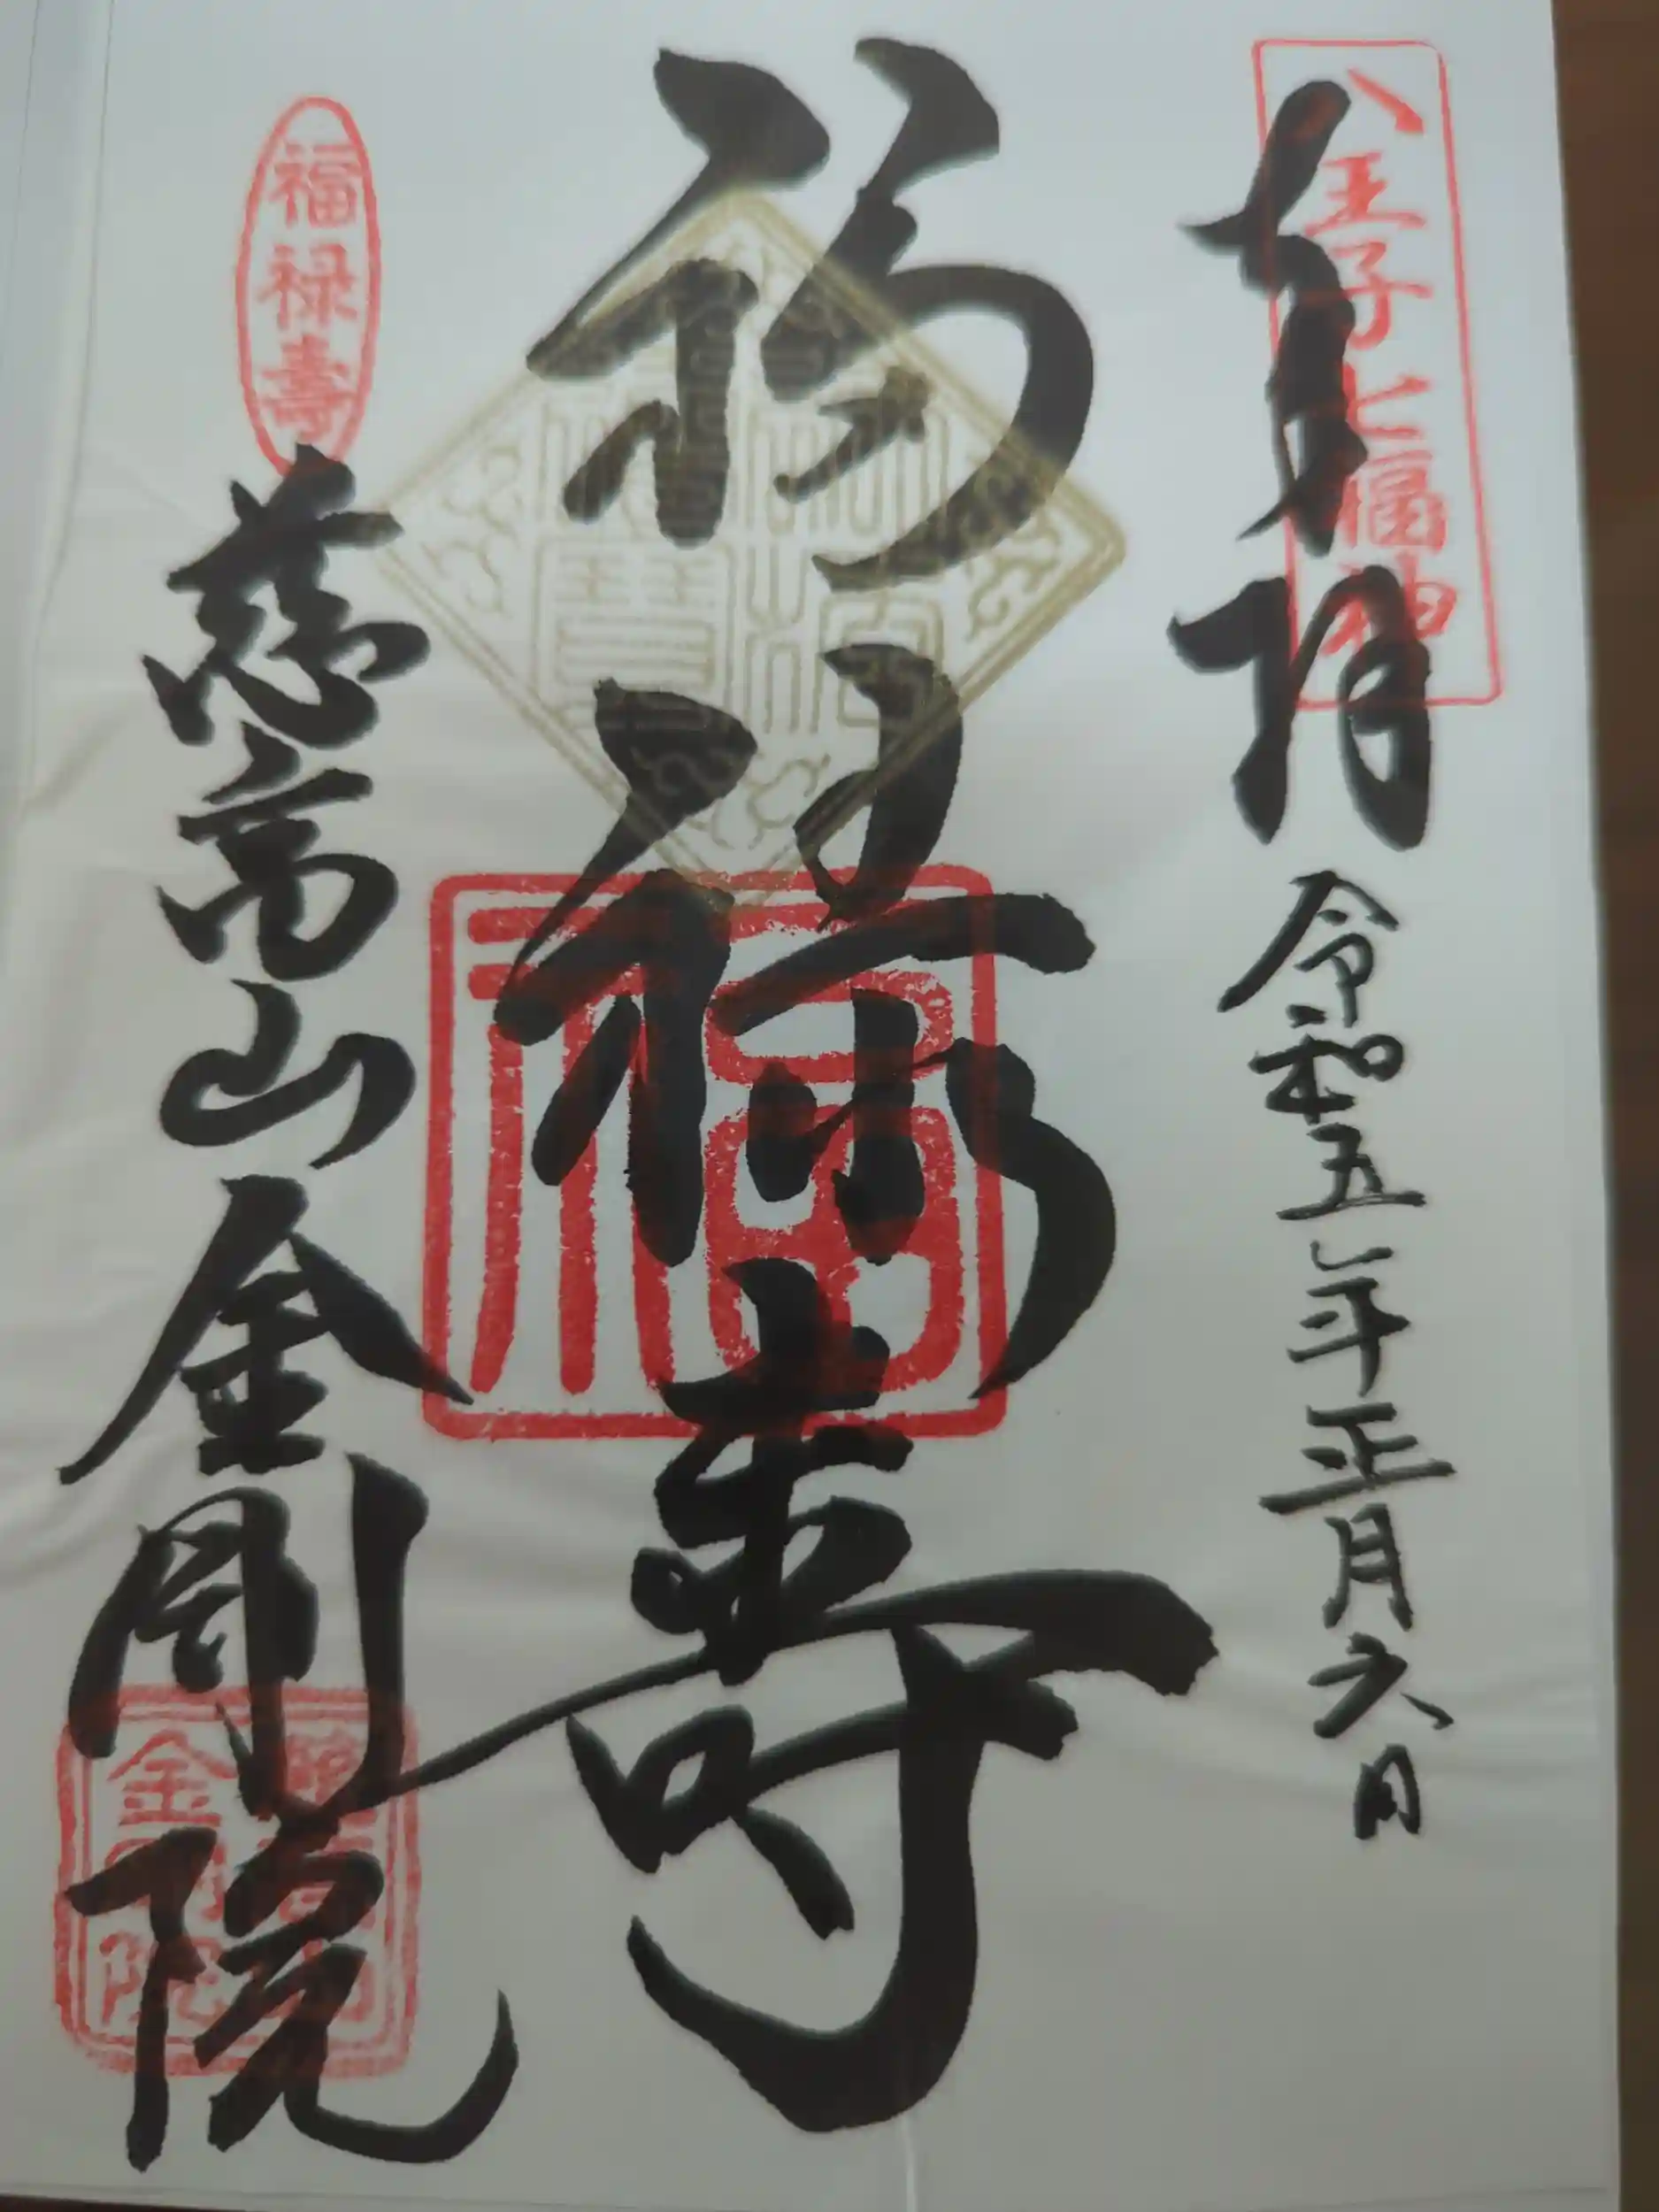 八王子七福神
奉拝 令和五年正月六日
福禄寿
福
福禄壽
慈高山金剛院
金剛院